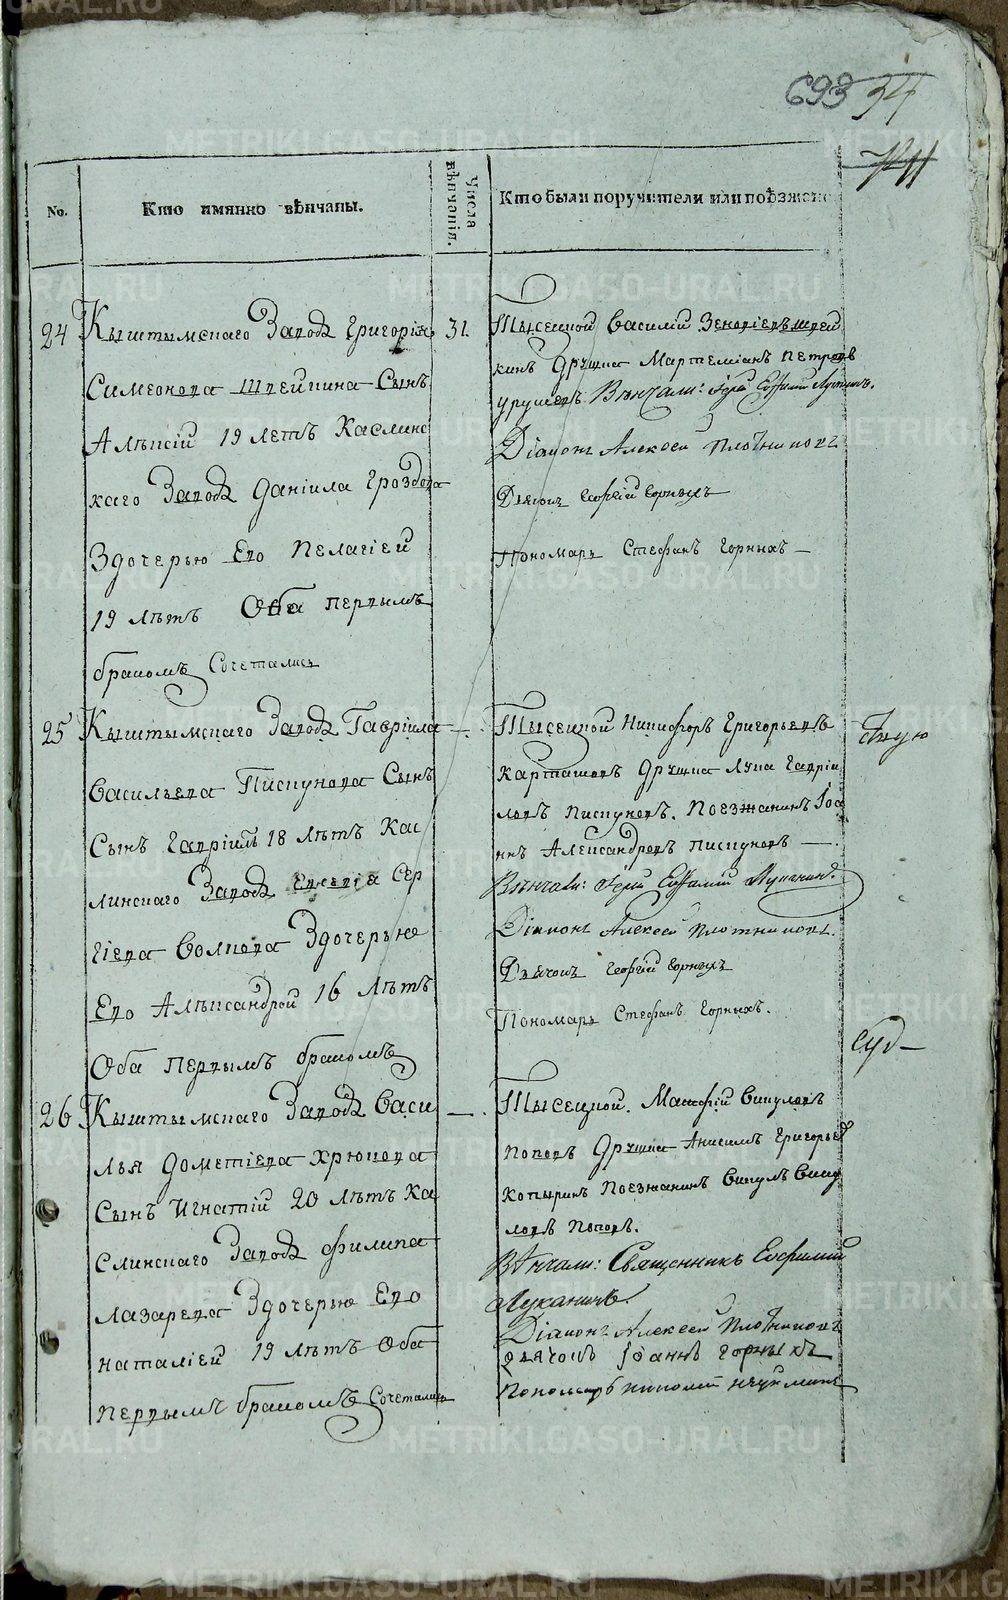 693 34
No.
Кто имянно вѣнчаны.
Числа вѣнчанія.
Кто были поручители или поѣзжане
24
Кыштымскаго Завода Григорія
Симеонова Сынъ
Алѣксій 19 лѣтъ Каслинс
каго Завода Даніила Гроздова
Здочерью Его Пелагіей
19 лѣтъ Оба первымъ
бракомъ Сочетались
31.
Тысецкой Василій
кинъ Дружка Мартеміанъ Петровъ
Вѣнчали: Іерей Евфимій
Діаконъ Алексей Плотниковъ
Дьячокъ Георгій Горныхъ
Пономарь Стефанъ Горныхъ —
25
Кыштымскаго Завода Гавріила
Васильева Пискунова Сынъ
Сынъ Гавріилъ 18 лѣтъ Кас
линскаго Завода Сер
гіева Волкова Здочерью
Его Алѣксандрой 16 лѣтъ
Оба Первымъ бракомъ
— .
Тысецкой Никифоръ Григорьевъ
Карташовъ Дружка Лука Гаврі
ловъ Пискуновъ. Поезжанинъ Іоа
ннъ Александровъ Пискуновъ —
Вѣнчали: Іерей Евфимій Луканинъ.
Діаконъ Алексей Плотниковъ.
Дьячокъ Георгій Горныхъ
Пономарь Стефанъ Горныхъ.
ствую
26
Кыштымскаго Завода Васи
лья Дометіева Хрюкова
Сынъ Игнатій 20 лѣтъ Ка
слинскаго Завода Филипа
Лазарева Здочерью Его
Наталіей 19 лѣтъ Оба
Первымъ бракомъ Сочетались
— .
Тысецкой. Матфій Викуловъ
Поповъ Дружка Анисимъ Григорьев
Копыринъ Поезжанинъ Викулъ Вику
ловъ Поповъ.
Вѣнчали: Священникъ Евфимій
Луканинъ.
Діаконъ Алексей Плотниковъ
Дьячокъ Іоаннъ Горныхъ
Пономарь
суд —
METRIKI.GASO-URAL.RU